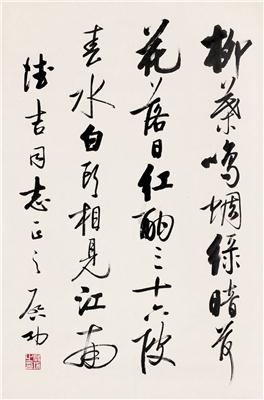 柳叶鸣蜩绿暗荷
花落日红酣三十六陂
春水白头相见江南
德吉同志正之 启功